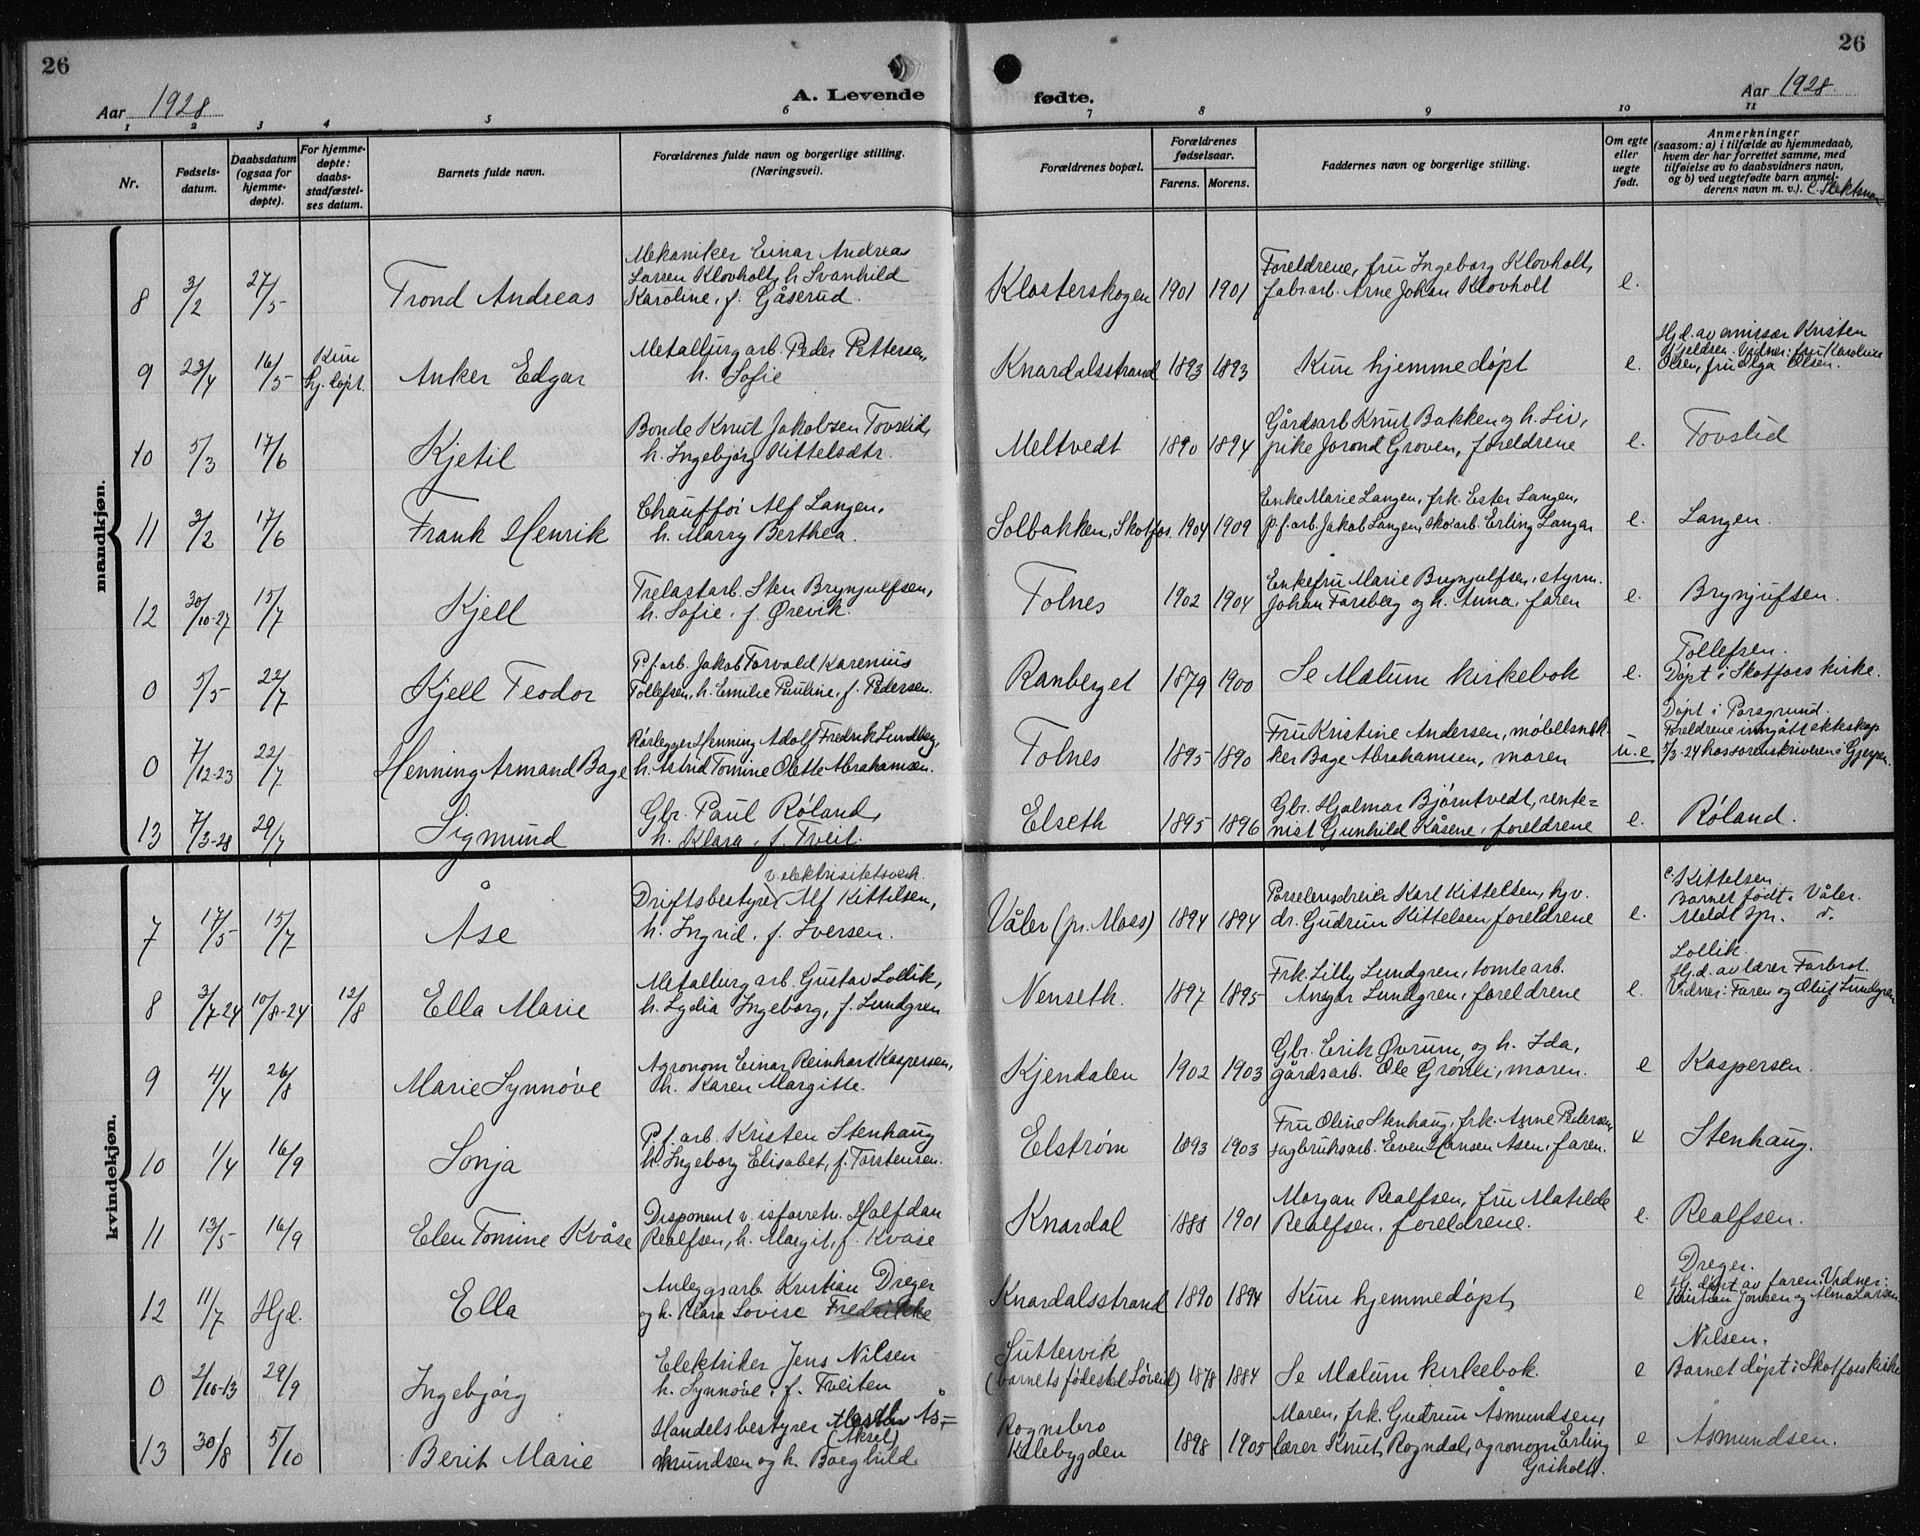 26
26
Aar 1928
A. Levende
fødte.
Aar 1928.
1 2 3 4 5 6 7 8 9 10 11
Nr.
Fødsels-
datum.
Daabsdatum
(ogsaa for
hjemme-
døpte).
For hjemme-
døpte:
daabs-
stadfæstel-
ses datum.
Barnets fulde navn.
Forældrenes fulde navn og borgerlige stilling.
(Næringsvei).
Forældrenes bopæl.
Forældrenes
fødselsaar.
Farens. Morens.
Faddernes navn og borgerlige stilling.
Om egte
eller
uegte
født.
Anmerkninger
(saasom: a) i tilfælde av hjemmedaab,
hvem der har forrettet samme, med
tilføielse av to daabsvidners navn,
og b) ved uegtefødte barn anmel-
derens navn m. v.). C. Slektsnavn
mandkjøn.
8 3/2 27/5 Trond Andreas
Mekaniker Einar Andreas
Larsen Klovholt, h. Svanhild
Karoline, f. Gåserud.
Klosterskogen 1901 1901
Foreldrene, fru Ingeborg Klovholt,
fabr.arb. Arne Johan Klovholt
e.
9 23/4 16/5 Kun
hj.døpt. Anker Edgar
Metallurg arb. Peder Pettersen,
h. Sofie
Knardalsstrand 1893 1893
Kun hjemmedøpt
e.
Hjd. av emissær Kristen
Kjeldsen. Vidner: fru Karoline
Olsen, fru Olga Olsen.
10 5/3 17/6 Kjetil
Bonde Knut Jakobsen Tovslid,
h. Ingebjørg Kittelsdtr.
Meltvedt 1890 1894
Gårdsarb Knut Bakken og h. Liv,
pike Jorond Groven, foreldrene
e. Tovslid
11 3/2 17/6 Frank Henrik
Chauffør Alf Langen,
h. Marry Berthea.
Solbakken, Skotfos. 1904 1909
Enke Marie Langen, frk. Ester Langen,
p.f.arb. Jakob Langen, skoarb. Erling Langen
e. Langen.
12 30/10-27 15/7 Kjell
Trelastarb. Sten Brynjulfsen,
h. Sofie, f. Ørevik.
Tolnes 1902 1904
Enkefru Marie Brynjulfsen, styrm.
Johan Forsberg og h. Anna, faren
e. Brynjufsen.
0 5/5 22/7 Kjell Teodor
P.f.arb. Jakob Torvald Karenius
Tollefsen, h. Emilie Pauline, f. Pedersen.
Ranberget 1879 1900
Se Mælum kirkebok
e.
Tollefsen.
Døpt i Skotfoss kirke.
0 7/12-23 22/7 Henning Armand Bage
Rørlegger Henning Adolf Fredrik Lundberg,
h. Astrid Tomine Olette Abrahamsen.
Tolnes 1895 1890
Fru Kristine Andersen, møbelsnek-
ker Bage Abrahamsen, moren
u.e
Døpt i Porsgrund.
Foreldrene inngått ekteskap
7/3-24 hos sorenskriveren i Gjerpen.
13 7/3-28 29/7 Sigmund
Gbr. Paul Røland,
h. Klara, f. Tveit.
Elseth 1895 1896
Gbr. Hjalmar Bjørntvedt, rente-
nist Gunhild Kåsene, foreldrene
e. Røland.
kvindekjøn.
7 17/5 15/7 Åse
v. elektrisitetsverk.
Driftsbestyrer Alf Kittilsen,
h. Ingrid, f. Iversen.
Våler (pr. Moss) 1894 1894
Porselensdreier Karl Kittelsen, hjv.
dr. Gudrun Kittelsen, foreldrene
e.
c. Kittelsen.
Barnet født i Våler.
Meldt spr. d.
8 3/7-24 10/8-24 12/8 Ella Marie
Metallurg arb. Gustav Lollik,
h. Lydia Ingeborg, f. Lundgren
Nenseth. 1897 1895
Frk. Lilly Lundgren, tomtearb.
Ansgar Lundgren, foreldrene
e.
Lollik.
Hjd. av lærer Farbrot.
Vidner: Faren og Oluf Lundgren
9 4/4 26/8 Marie Synnøve
Agronom Einar Reinhart Kaspersen,
h. Karen Margitte.
Kjendalen 1902 1903
Gbr. Erik Øvrum, og h. Ida,
gårdsarb. Ole Grønli, moren.
e Kaspersen.
10 1/4 16/9 Sonja
P.f. arb. Kristen Stenhaug
h. Ingeborg Elisabet, f. Torstensen.
Elstrøm 1893 1903
Fru Oline Stenhaug, frk. Anne Pedersen,
sagbruksarb. Even Hansen Åsen, faren.
e Stenhaug.
11 13/5 16/9 Elen Tomine Kvåse
Disponent v. isforretn. Halfdan
Realfsen, h. Margit, f. Kvåse
Knardal 1888 1901
Morgan Realfsen, fru Matilde
Realfsen, foreldrene.
e. Realfsen.
12 11/7 Hjd. Ella
Anleggsarb. Kristian Dreger
og h. Klara Lovise Fredrikke
Knardalsstrand 1890 1894
Kun hjemmedøpt,
e
Dreger.
Hj. døpt av faren. Vidner:
Kristian Jonsen og Alma Larsen
0 2/10-13 29/9 Ingebjørg
Elektriker Jens Nilsen
h. Synnøve, f. Tveiten
Suttervik
(barnets fødested Løveid) 1878 1884
Se Mælum kirkebok.
e
Nilsen.
Barnet døpt i Skotfoss kirke
13 30/8 5/10 Berit Marie
Handelsbestyrer Ås-
(Aksel)
mundsen og h. Borghild.
Rognsbro
Kilebygden 1898 1905
Moren, frk. Gudrun Åsmundsen,
lærer Knut Rogndal, agronom Erling
Griholt.
e Åsmundsen.